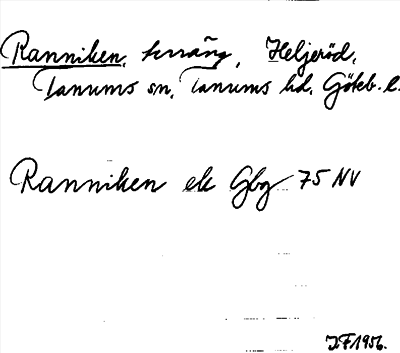 Ranniken, terräng, Heljeröd,
Tanums sn, Tanums hd, Göteb. l.
Ranniken ek Gbg 75 NV
J.F. 1956.